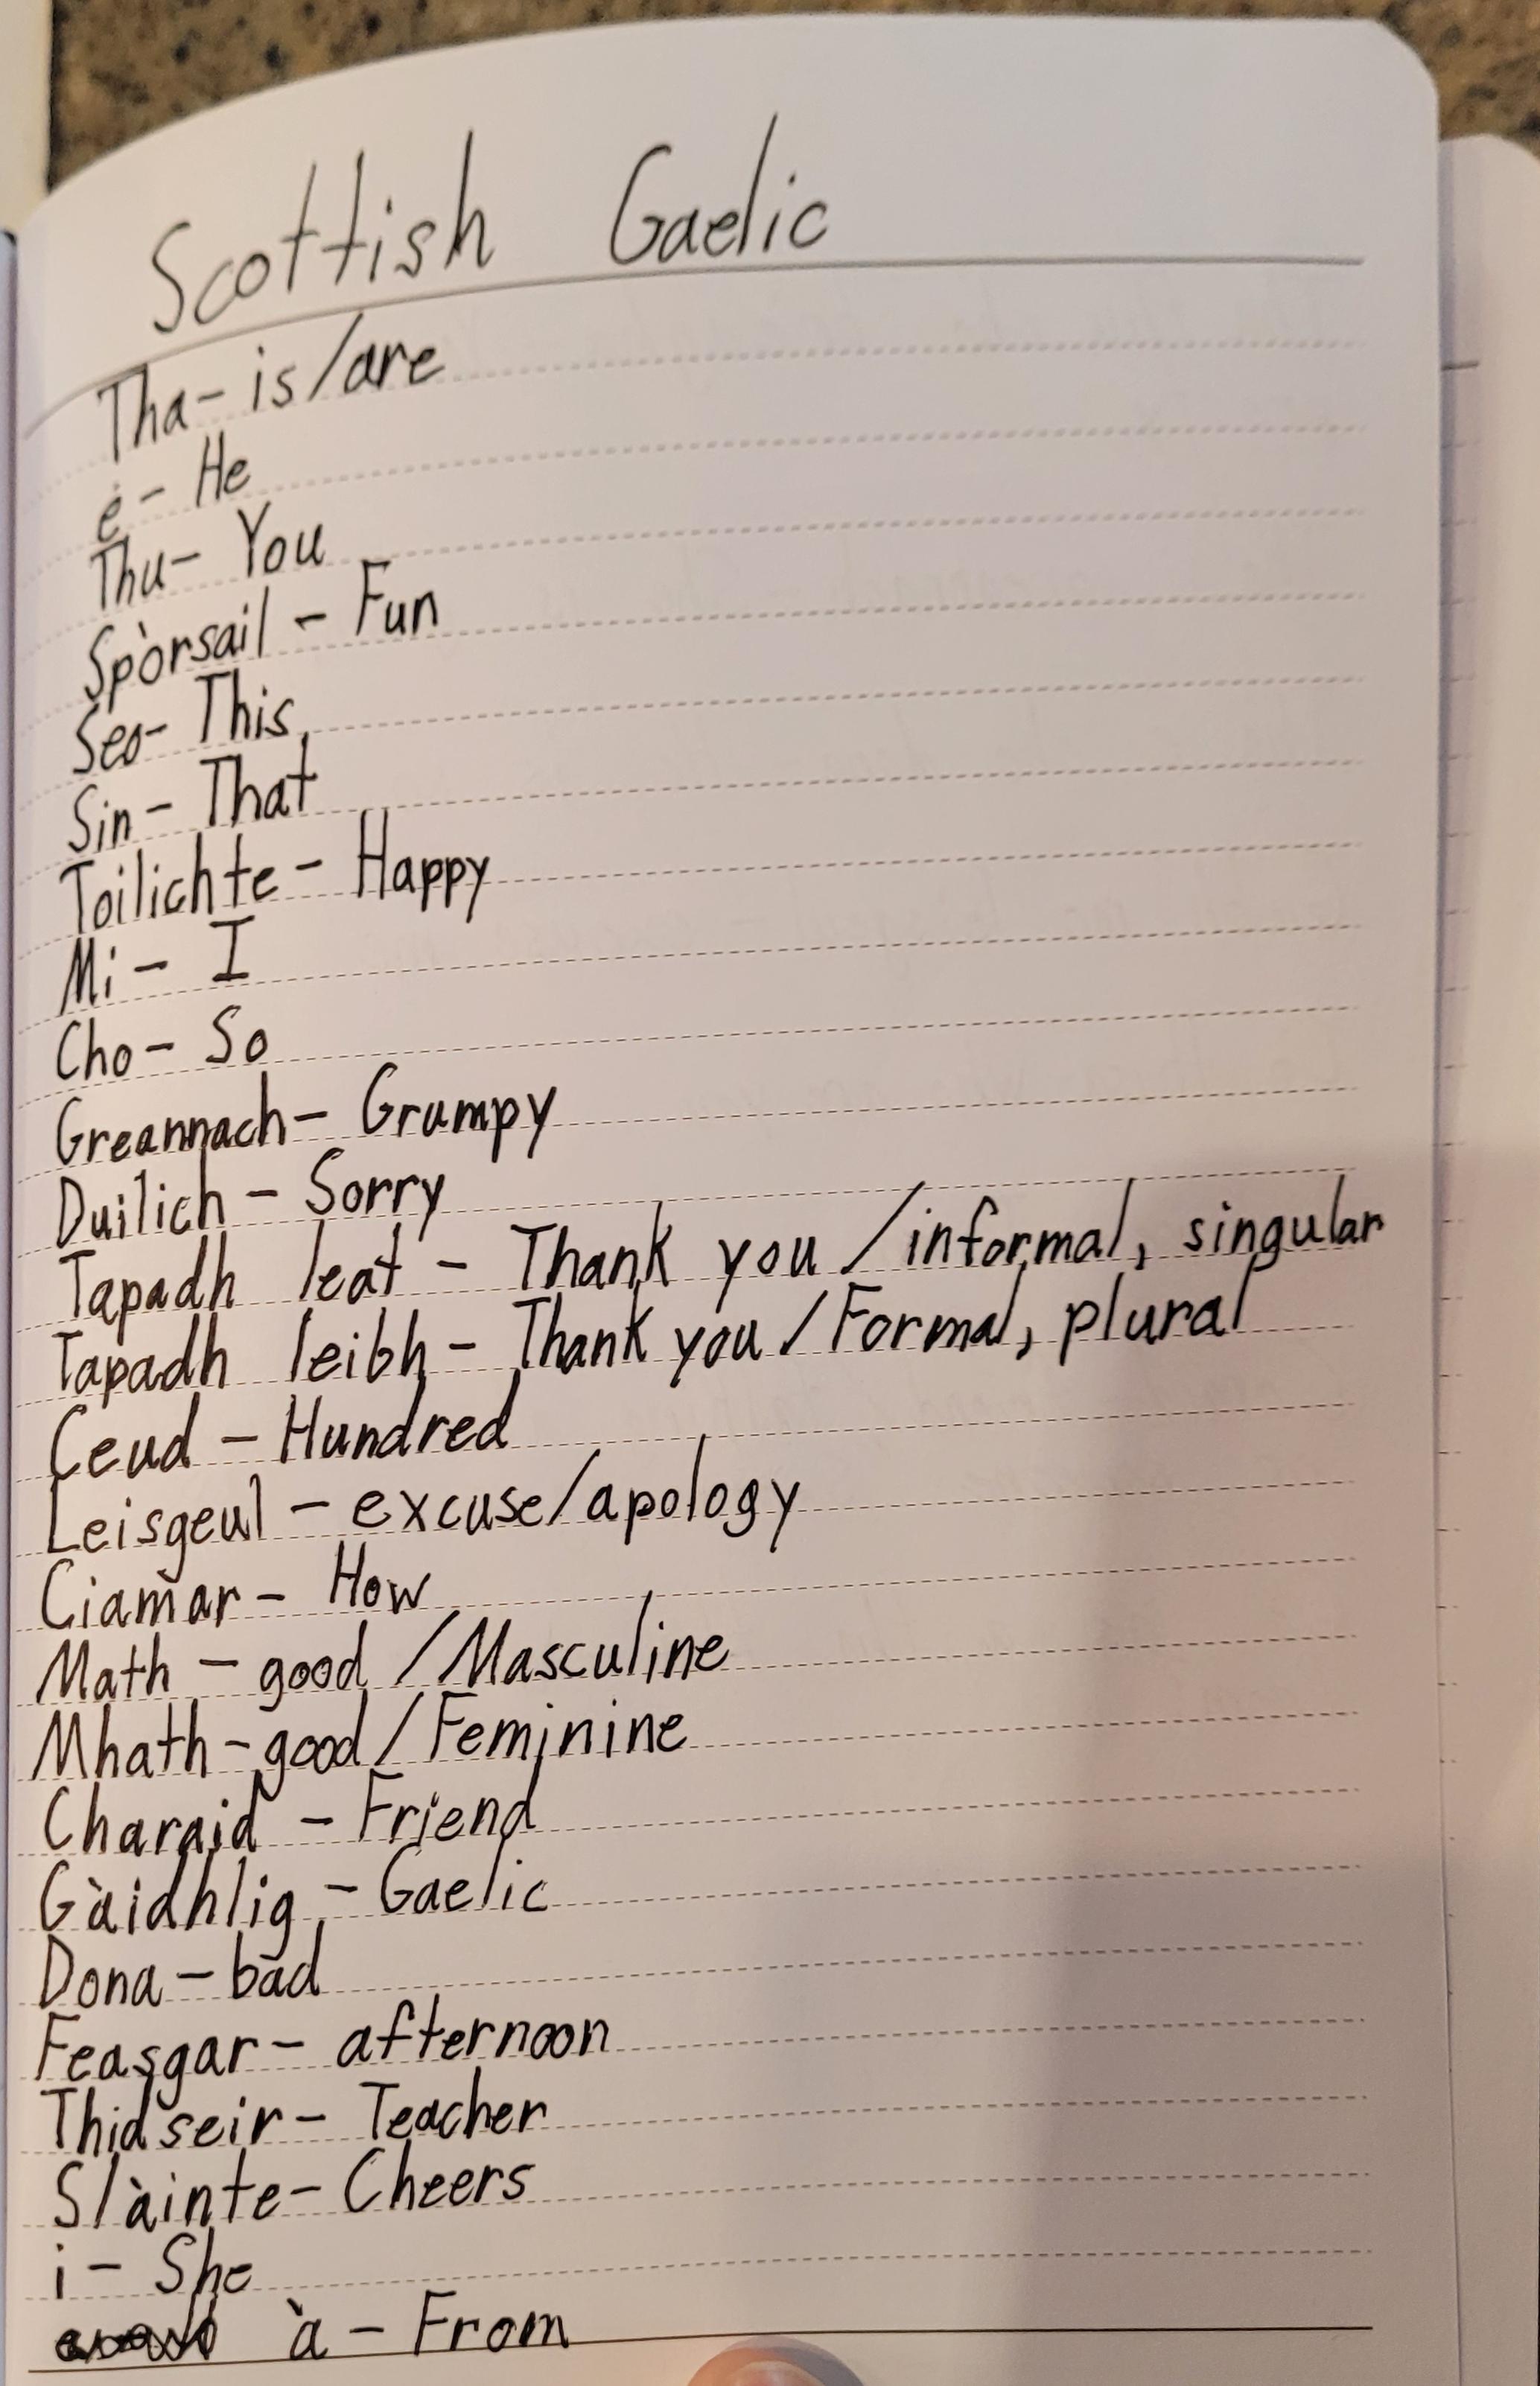 Scottish Gaelic
Tha- is/are
e- He
Thu- You
Spòrsail - Fun
Seo- This
Sin- That
Toilichte- Happy
Mi- I
Cho- So
Greannach- Grumpy
Duilich- Sorry
Tapadh leat - Thank you /informal, singular
Tapadh leibh- Thank you /Formal, plural
Ceud - Hundred
Leisgeul - excuse/apology
Ciamar- How
Math - good /Masculine
Mhath-good/Feminine
Charaid - Friend
Gàidhlig - Gaelic
Dona-bad
Feasgar- afternoon
Thidseir- Teacher
Slàinte- Cheers
i- She
à- From